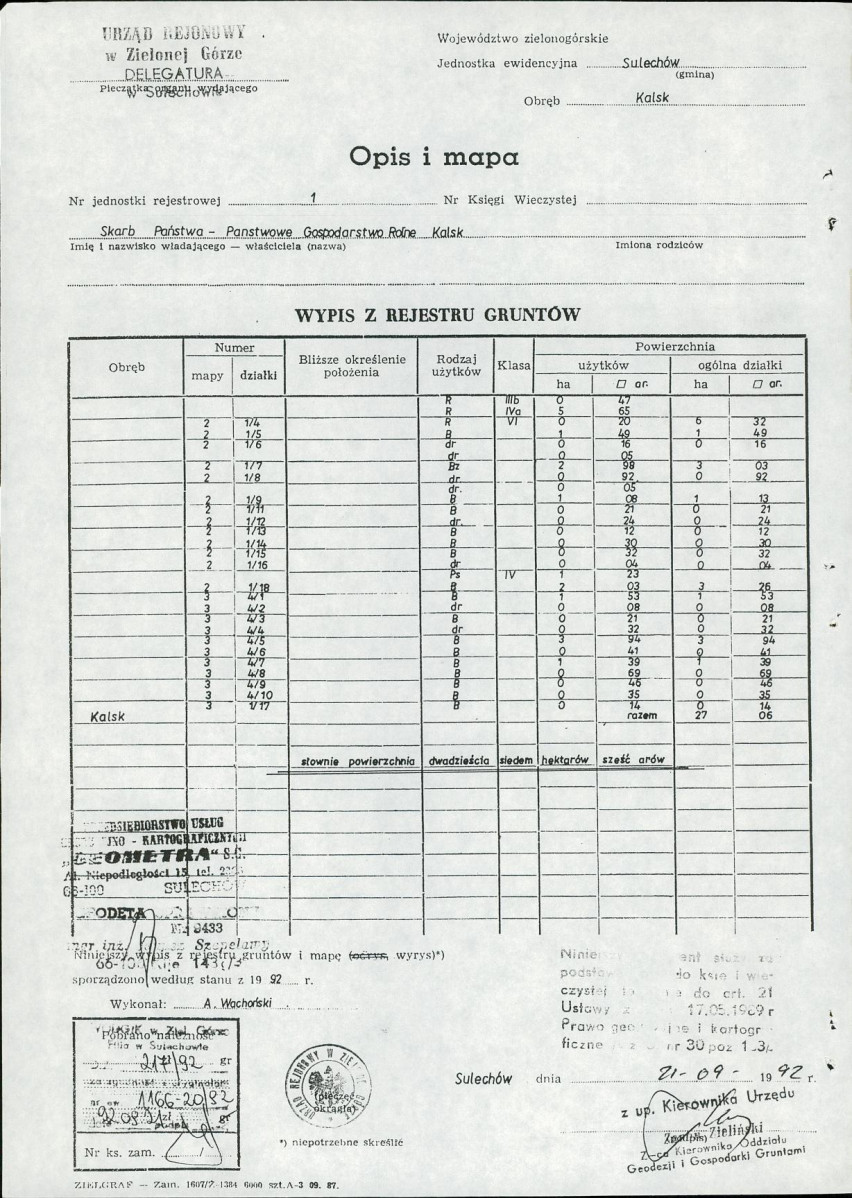 URZĄD REJONOWY
w Zielonej Górze
DELEGATURA
w Sulechowie
Pieczątka organu wydającego
Województwo zielonogórskie
Jednostka ewidencyjna Sulechów
(gmina)
Obręb Kalsk
Opis i mapa
Nr jednostki rejestrowej 1 Nr Księgi Wieczystej
Skarb Państwa - Panstwowe Gospodarstwo Rolne Kalsk
Imię i nazwisko władającego — właściciela (nazwa) Imiona rodziców
WYPIS Z REJESTRU GRUNTÓW
Obręb Numer Bliższe określenie położenia Rodzaj użytków Klasa Powierzchnia
mapy działki użytków ogólna działki
ha □ ar. ha □ ar.
R IIIb 0 47
R IVa 5 65
2 1/4 R VI 0 20 6 32
2 1/5 B 1 49 1 49
2 1/6 dr 0 16 0 16
dr 0 05
2 1/7 Bz 2 98 3 03
2 1/8 dr. 0 92 0 92
dr. 0 05
2 1/9 B 1 08 1 13
2 1/11 B 0 21 0 21
2 1/12 dr. 0 24 0 24
2 1/13 B 0 12 0 12
2 1/14 B 0 30 0 30
2 1/15 B 0 32 0 32
2 1/16 dr 0 04 0 04
Ps IV 1 23
2 1/18 B 2 03 3 26
3 4/1 B 1 53 1 53
3 4/2 dr 0 08 0 08
3 4/3 B 0 21 0 21
3 4/4 dr 0 32 0 32
3 4/5 B 3 94 3 94
3 4/6 B 0 41 0 41
3 4/7 B 1 39 1 39
3 4/8 B 0 69 0 69
3 4/9 B 0 46 0 46
3 4/10 B 0 35 0 35
3 1/17 B 0 14 0 14
Kalsk razem 27 06
słownie powierzchnia dwadzieścia siedem hektarów sześć arów
KARTOGRAFICZNYCH
"GEOMETRA" S.C.
Al. Niepodległości 15, tel.
66-100 SULECHÓW
GEODETA
mgr inż. Szepelawy
Niniejszy wypis z rejestru gruntów i mapę (odrys, wyrys)*)
sporządzono według stanu z 1992 r.
Wykonał: A. Wachoński
Pobrano należność
Filia w Sulechowie
217/92 gr
1166-20/92
92.09.21 zł gr
Nr ks. zam.
URZĄD REJONOWY W ZIEL
(pieczęć okrągła)
*) niepotrzebne skreślić
podstaw do ksie i wie-
czystej do art. 21
Ustawy 17.05.1989 r
Prawo geo i kartogr
ficzne nr 30 poz
Sulechów dnia 21-09- 1992 r.
z up. Kierownika Urzędu
Zieliński
(podpis)
Z-ca Kierownika Oddziału
Geodezji i Gospodarki Gruntami
ZIELGRAF — Zam. 1607/Z-1384 6000 szt. A-3 09. 87.